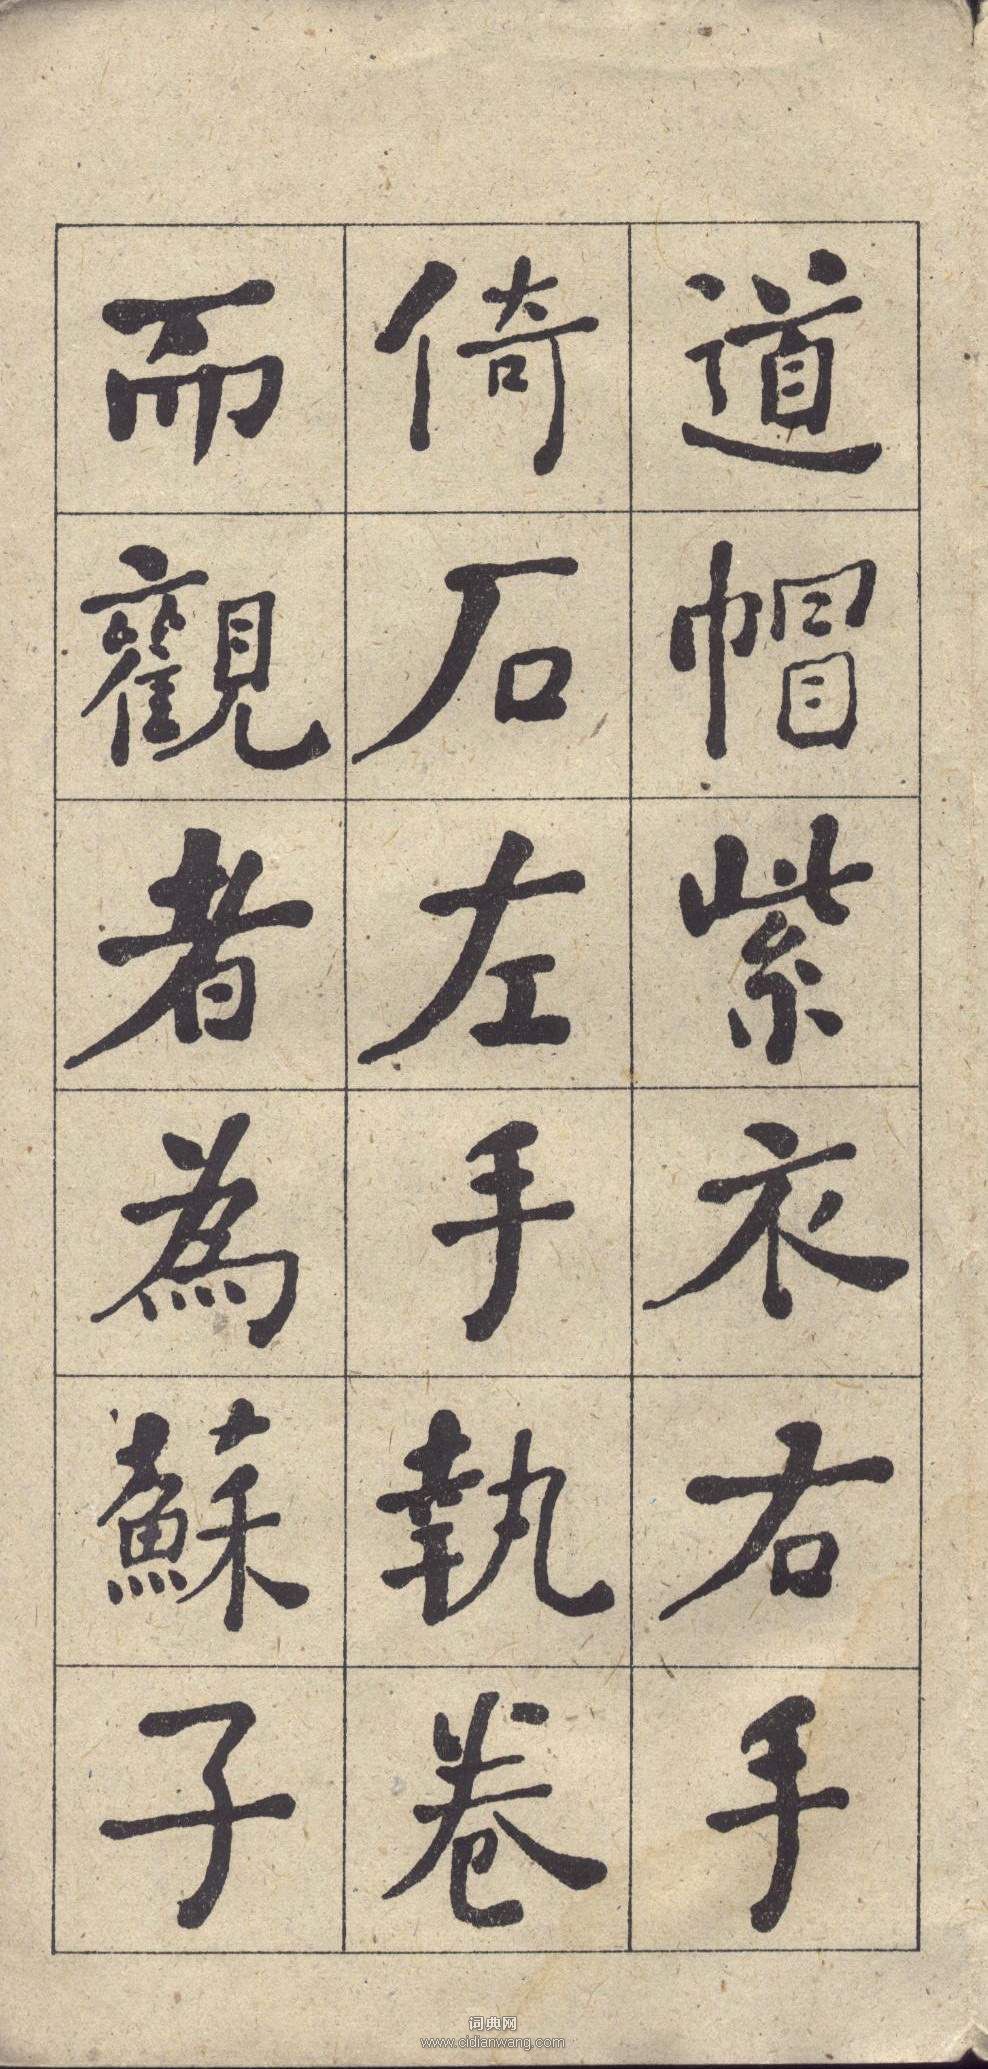 道帽紫衣右手
倚石左手執卷
而觀者為蘇子
词典网
www.cidianwang.com